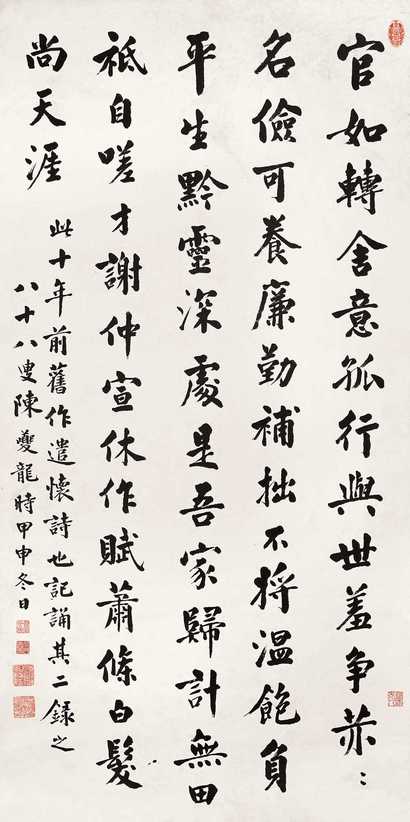 官如轉舍意孤行與世羞争莽〻
名儉可養廉勤補拙不將溫飽負
平生黔靈深處是吾家歸計無田
祗自嗟才謝仲宣休作賦蕭條白髮
尚天涯
此十年前舊作遣懷詩也記誦其二錄之
八十八叟陳夔龍時甲申冬日